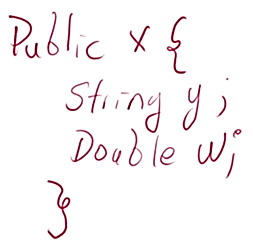 Public x {
String y ;
Double w;
}